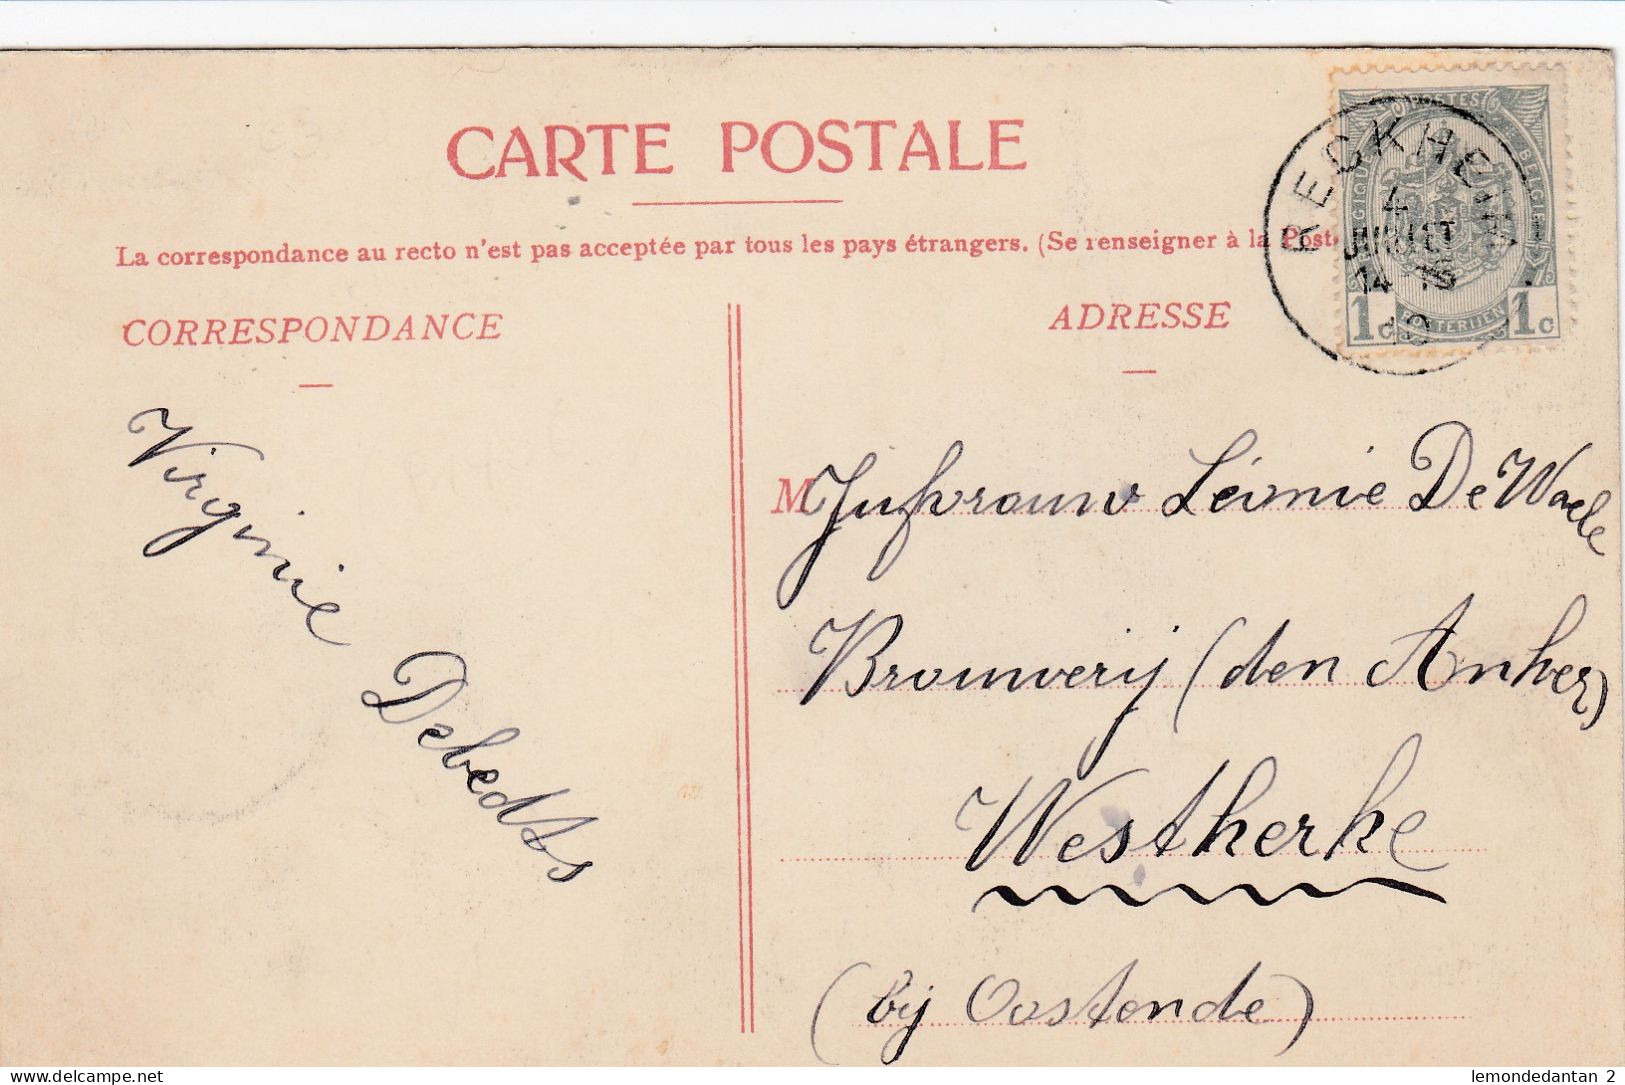 CARTE POSTALE
La correspondance au recto n'est pas acceptée par tous les pays étrangers. (Se renseigner à la Poste
CORRESPONDANCE
ADRESSE
POSTES
BELGIQUE
BELGIE
POSTERIJEN
1c 1c
RECKHEIM
4
JUILLET
14 15
10
Virginie Debedts
M Jufvrouw Léonie De Waele
Brouwerij (den Anker)
Westkerke
(bij Oostende)
lemondedantan 2